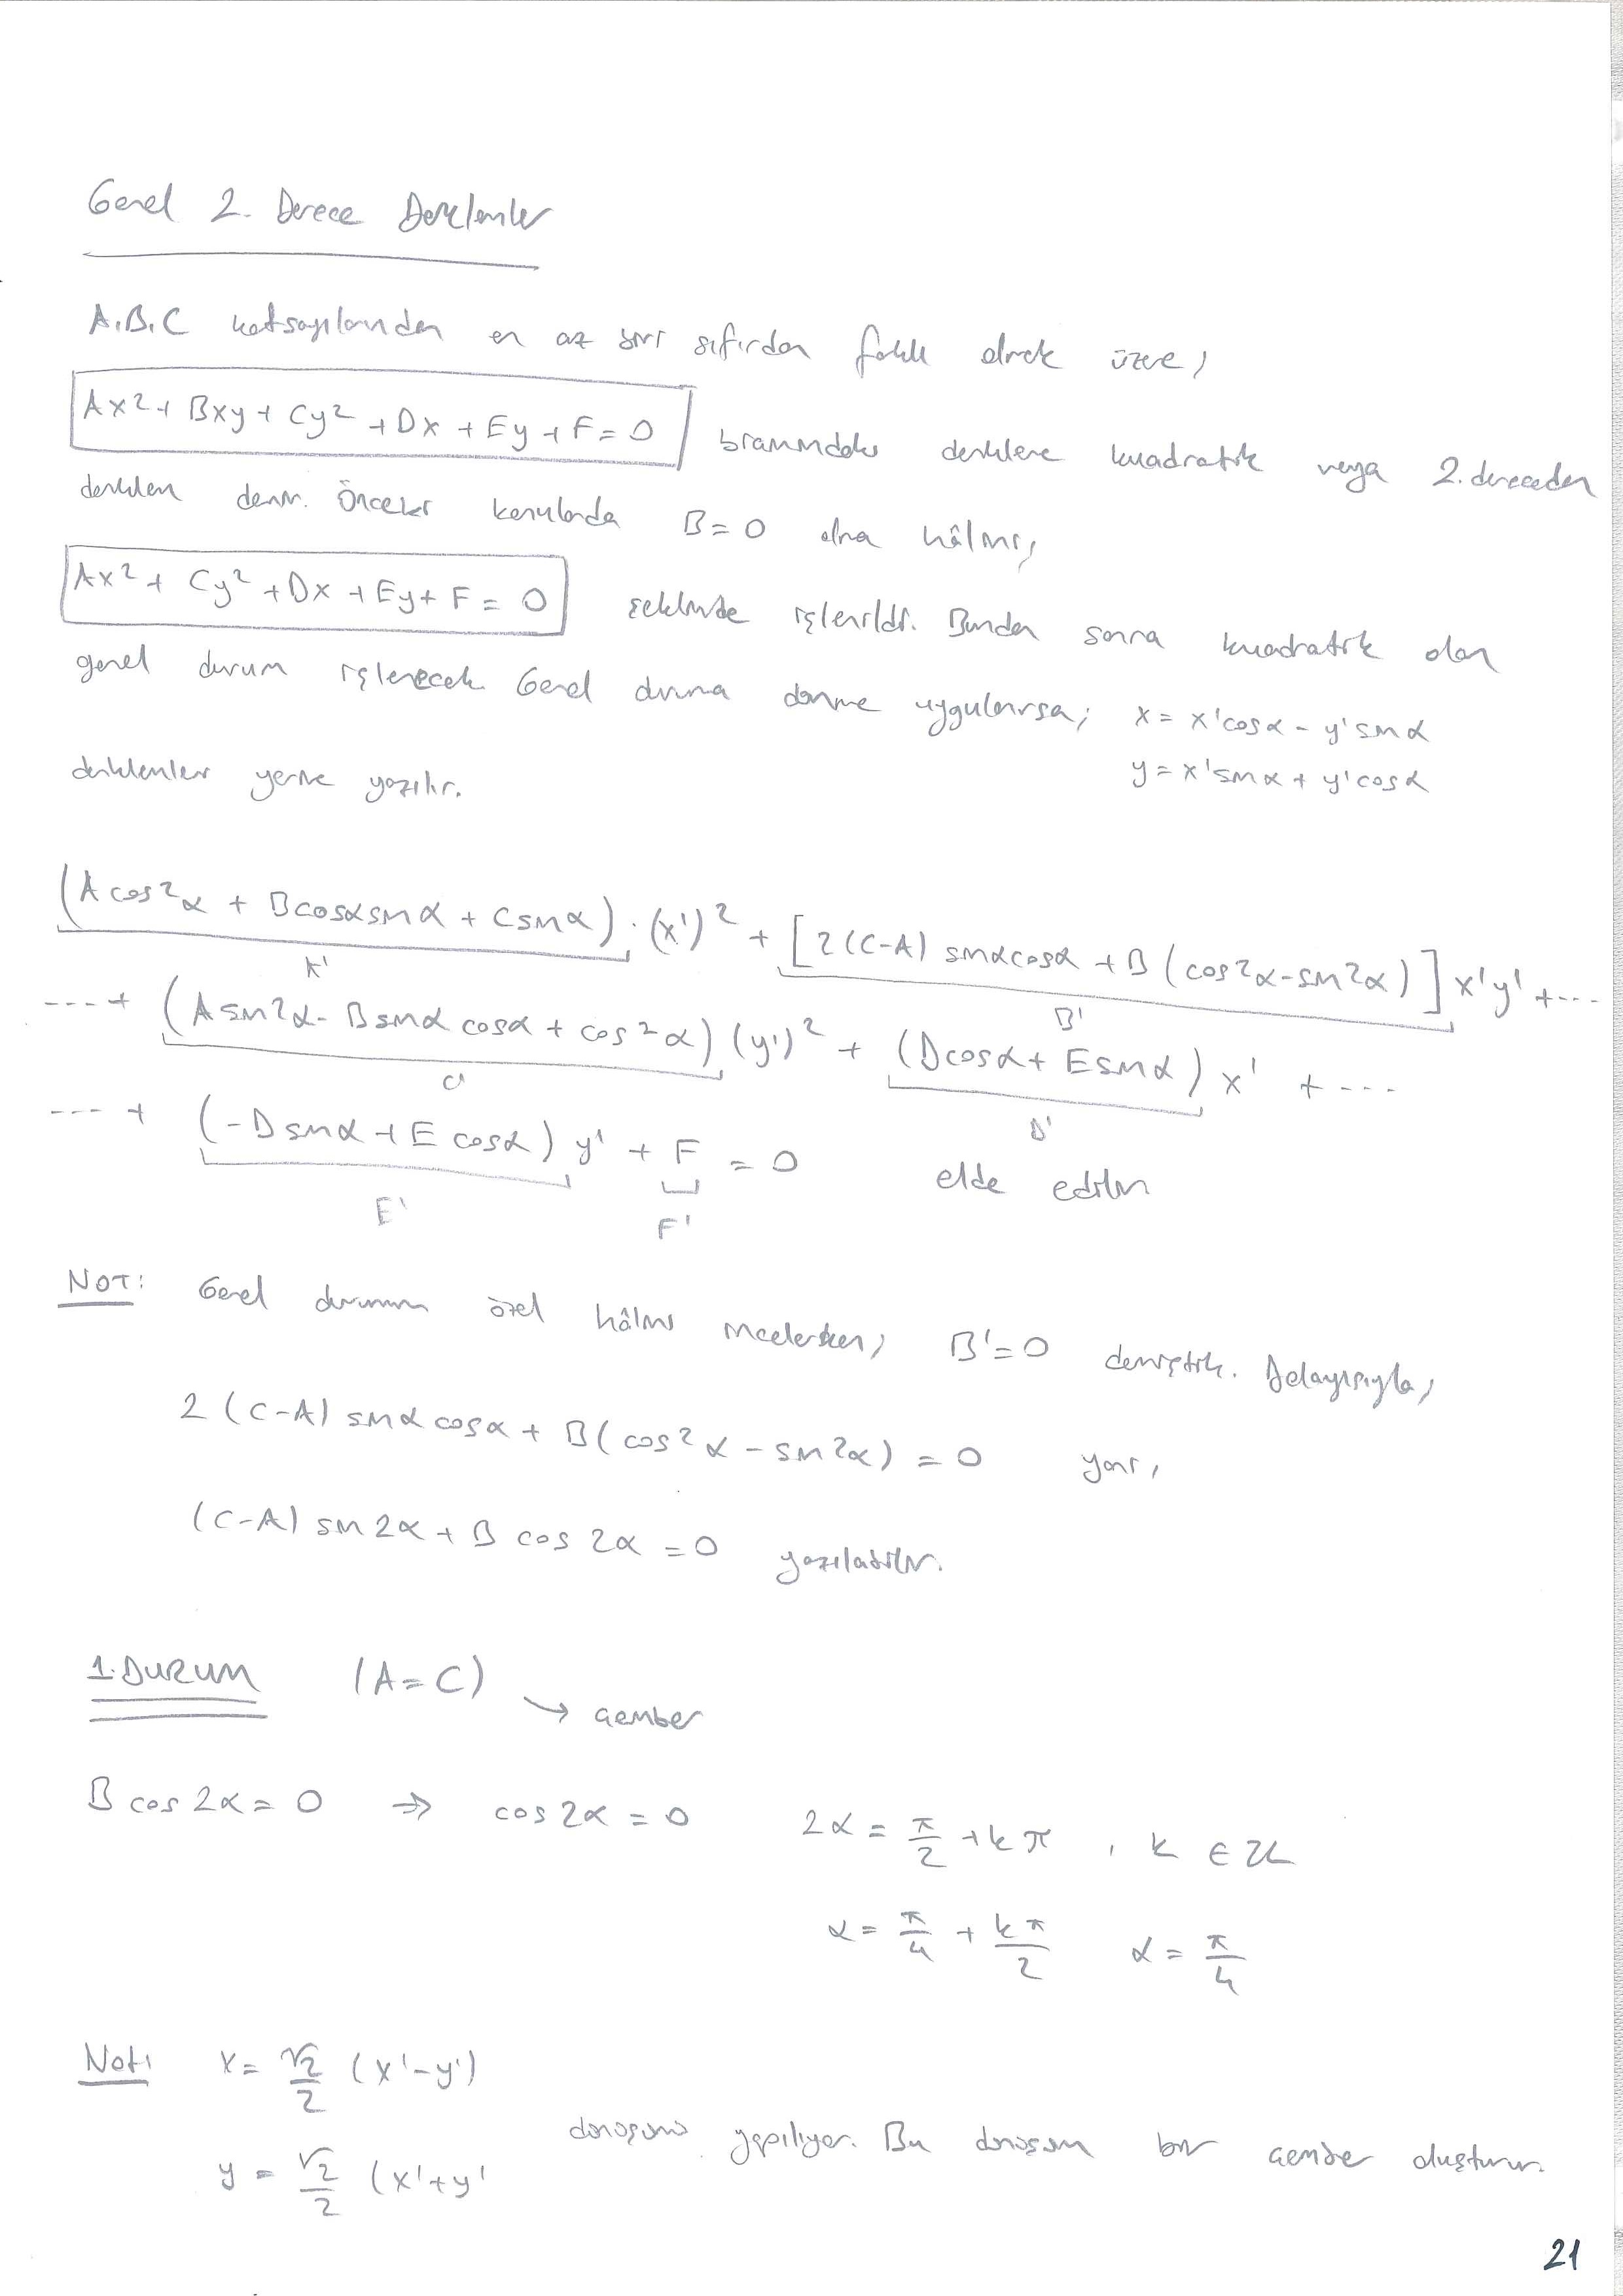 Genel 2. Derece Denklemler
A,B,C katsayılarından en az biri sıfırdan farklı olmak üzere,
Ax² + Bxy + Cy² + Dx + Ey + F = 0 biçimindeki denklere kuadratik veya 2. dereceden
denklem denir. Önceki konularda B = 0 olma hâlini,
Ax² + Cy² + Dx + Ey + F = 0 şeklinde işlenildi. Bundan sonra kuadratik olan
genel durum işlenecek. Genel duruma dönme uygulanırsa; x = x'cosα - y'sinα
y = x'sinα + y'cosα
denklemler yerine yazılır.
(A cos²α + Bcosαsinα + Csinα) . (x')² + [2(C-A) sinαcosα + B (cos²α - sin²α)] x'y' + ---
A' B'
---- + (A sin²α - Bsinα cosα + cos²α) (y')² + (Dcosα + Esinα) x' + ----
C' D'
---- + (-Dsinα + E cosα) y' + F = 0 elde edilir
E' F'
NOT: Genel durumun özel hâlini incelerken, B' = 0 demiştik. Dolayısıyla,
2 (C-A) sinα cosα + B( cos²α - sin²α) = 0 yani,
(C-A) sin2α + B cos 2α = 0 yazılabilir.
1. DURUM (A = C) → çember
B cos 2α = 0 ⇒ cos 2α = 0 2α = π/2 + kπ , k ∈ Z
α = π/4 + kπ/2 α = π/4
Not: x = √2/2 (x' - y')
dönüşümü yapılıyor. Bu dönüşüm bir çember oluşturur.
y = √2/2 (x' + y'
21